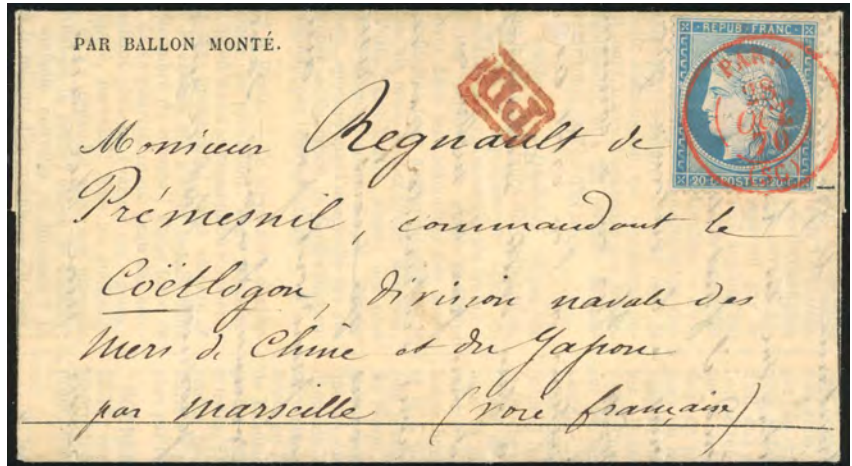 PAR BALLON MONTÉ.
PD
REPUB FRANC
PARIS
70
(SC)
20 C POSTES 20 C
Monsieur Regnault de
Prémesnil, commandant le
Coëtlogon, division navale des
Mers de Chine et du Japon
par Marseille (voie française)